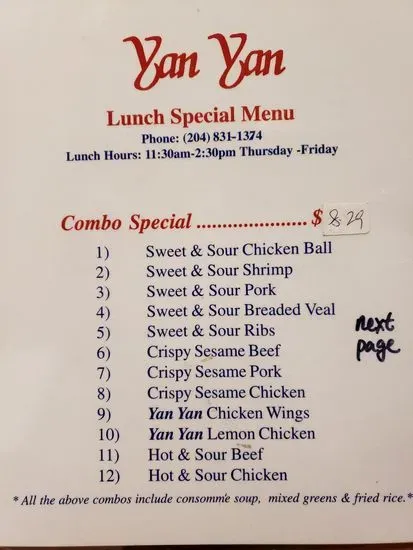 Yan Yan
Lunch Special Menu
Phone: (204) 831-1374
Lunch Hours: 11:30am-2:30pm Thursday -Friday
Combo Special ..................... $ 8.29
1) Sweet & Sour Chicken Ball
2) Sweet & Sour Shrimp
3) Sweet & Sour Pork
4) Sweet & Sour Breaded Veal
5) Sweet & Sour Ribs
6) Crispy Sesame Beef
7) Crispy Sesame Pork
8) Crispy Sesame Chicken
9) Yan Yan Chicken Wings
10) Yan Yan Lemon Chicken
11) Hot & Sour Beef
12) Hot & Sour Chicken
next
page
* All the above combos include consomm'e soup, mixed greens & fried rice.*